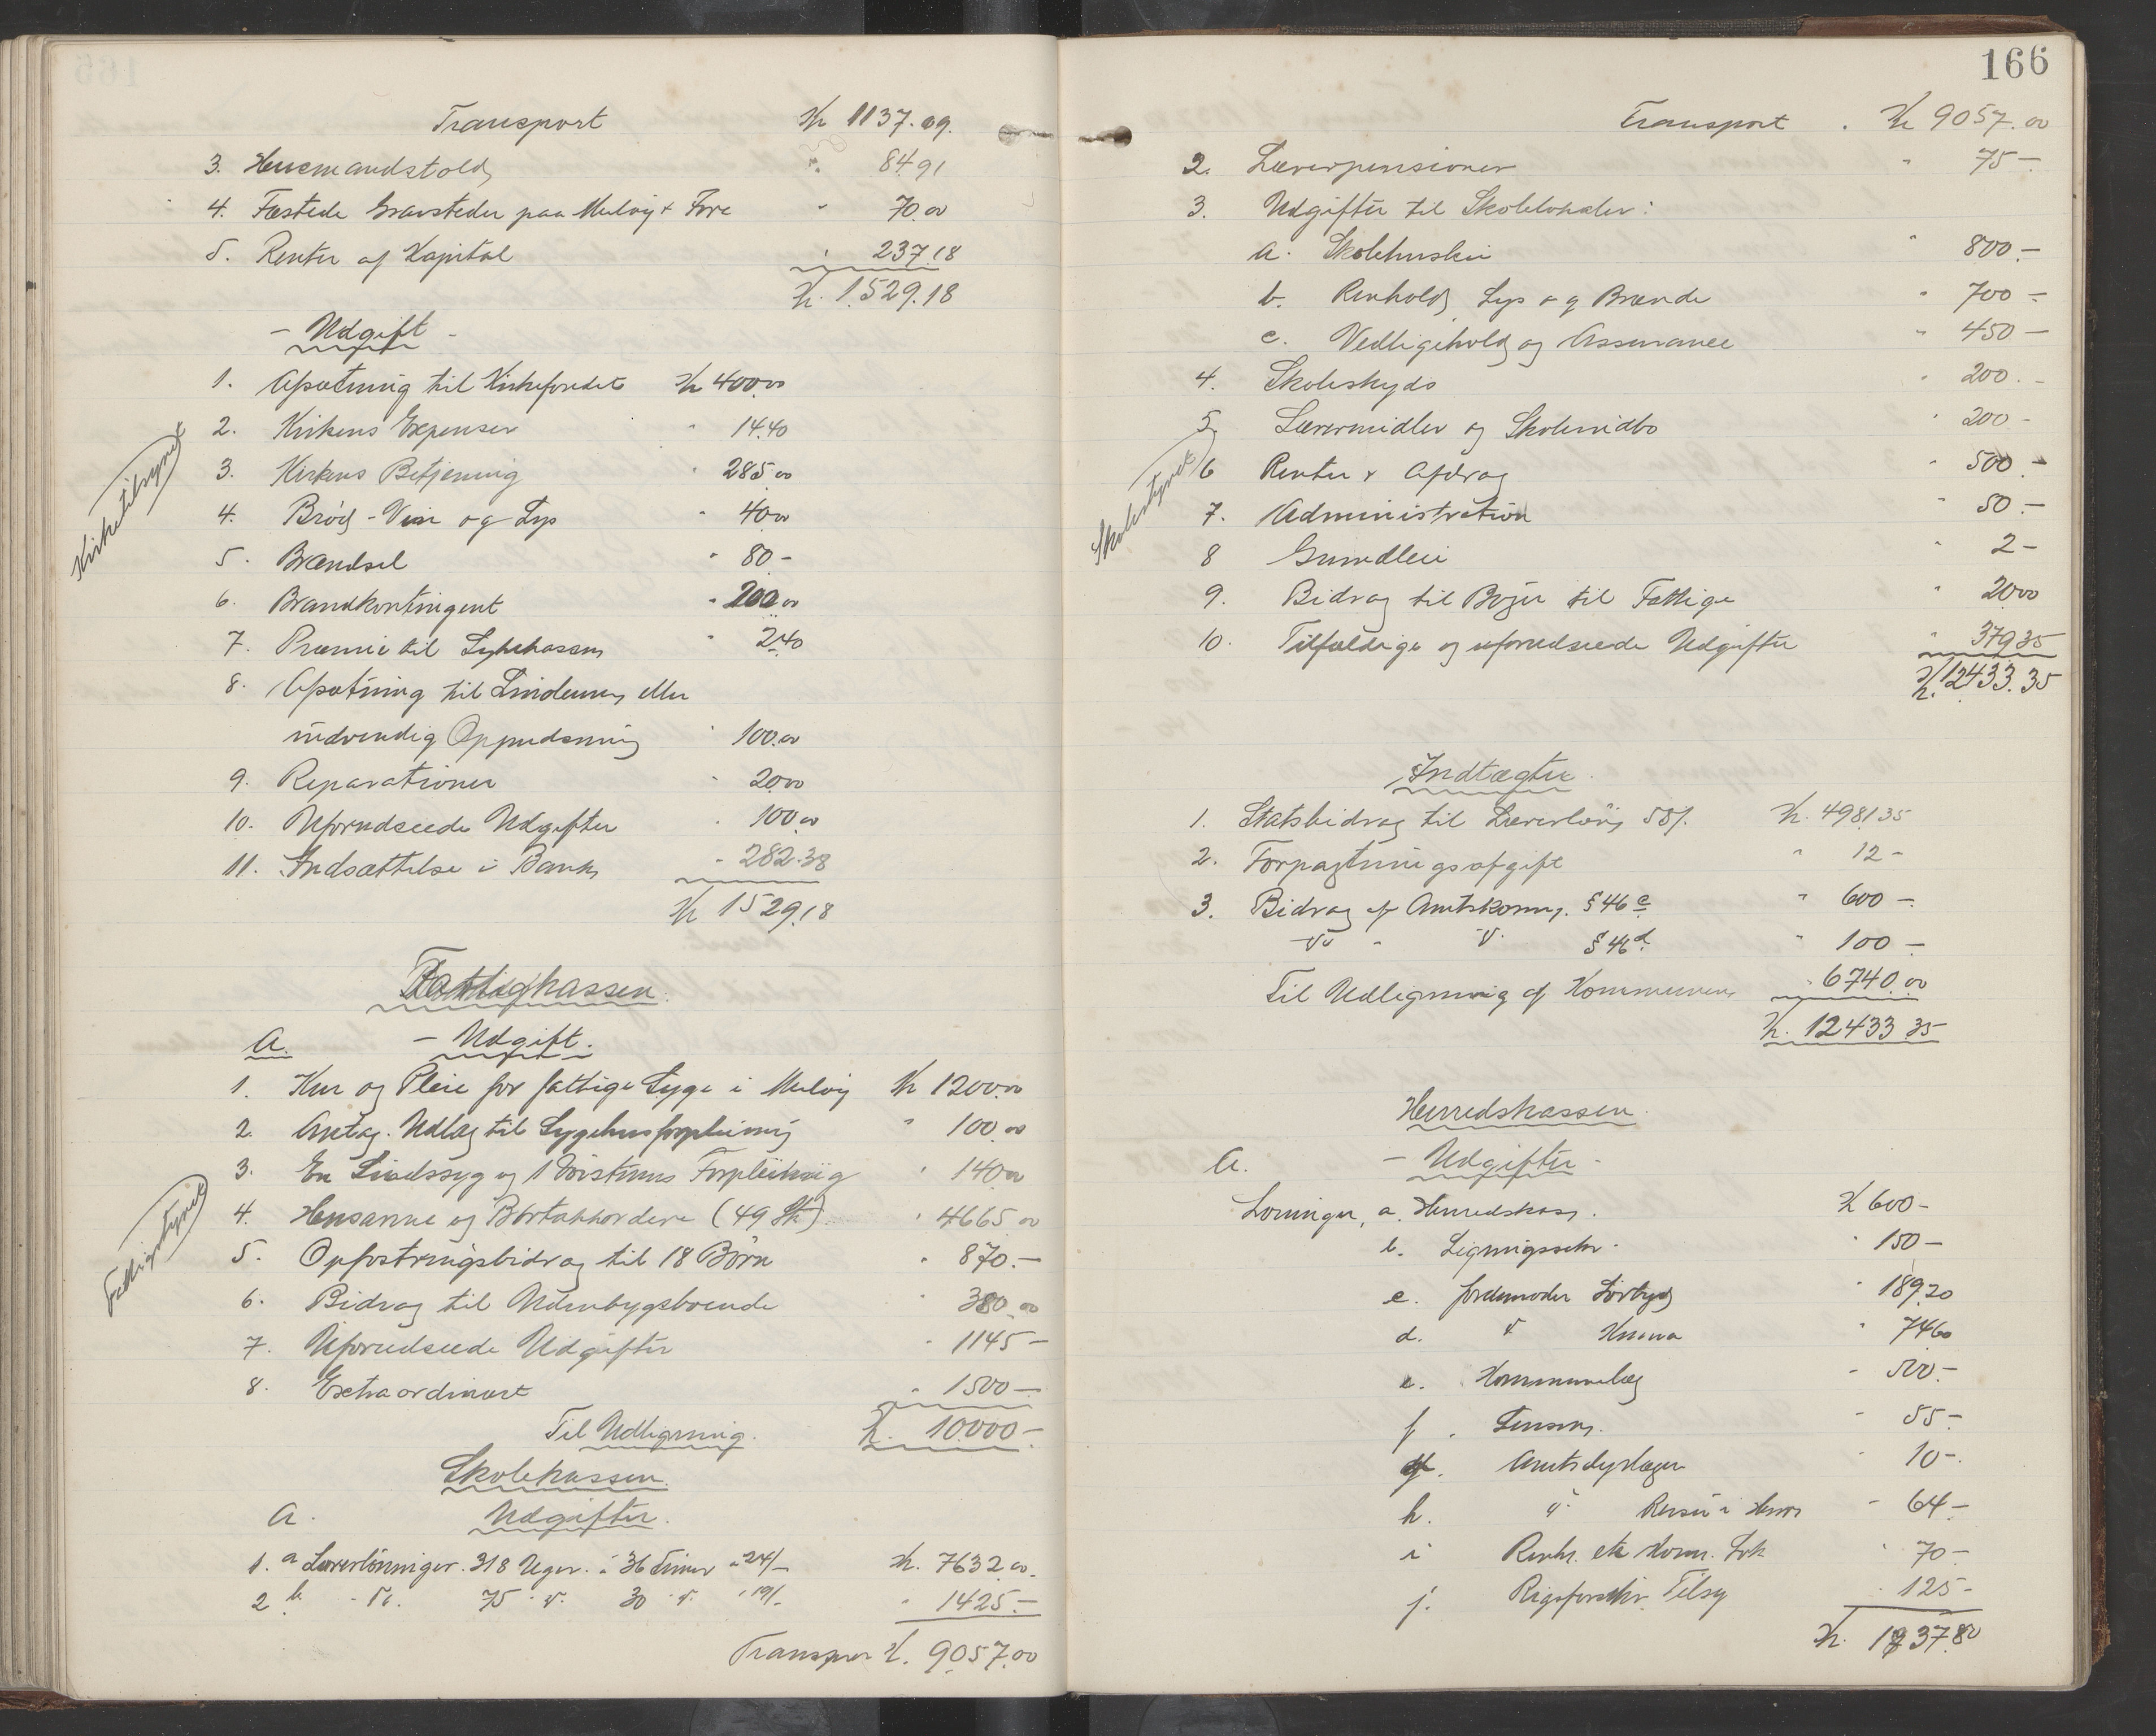 Transport Kr 1137.09.
3. Husmandstold " 84.91
4. Fæstede Gravsteder paa Melvig + Fore " 70.00
5. Renter af Kapital " 237.18
Kr. 1529.18
- Udgift -
1. Afsætning til Kirkefondet Kr 400.00
2. Kirkens Expenser " 14.40
3. Kirkens Betjening " 285.00
4. Brød - Vin og Lys " 40.00
5. Brændsel " 80 -
6. Brandkontingent " 200.00
7. Præmie til Sykekassen " 2.40
8. Afsætning til eller
indvendig Oppudsning " 100.00
9. Reparationer " 20.00
10. Uforudseede Udgifter " 100.00
11. Indsættelse i Bank " 282.38
Kr 1529.18
Kirketilsynet
Fattigkassen
A. - Udgift.
1. Kur og Pleie for fattige Syge i Melvig Kr 1200.00
2. Antag. Udlæg til Sygehusforpleining " 100.00
3. En Sindssyg og 1 Forpleining " 140.00
4. og Bortakkordere (49 Stk) " 4665.00
5. Opfostringsbidrag til 18 Børn " 870.-
6. Bidrag til Udenbygsboende " 380.00
7. Uforudseede Udgifter " 1145 -
8. Extraordinært " 1500 -
Til Udligning. Kr. 10000 -
Fattigstyret
Skolekassen
A. Udgifter.
1. a Lærerlønninger. 318 Uger. á 36 Timer á 24/- Kr. 7632.00.
2 b. - Do. 75 " d. 30 " d. " 19/- " 1425.-
Transport Kr. 9057.00
166
Transport . Kr 9057.00
2. Lærerpensioner " 75 -
3. Udgifter til Skolelokaler:
a. Skolehusleie " 800.-
b. Renhold, Lys og Brænde " 700 -
c. Vedligehold og Assurance " 450 -
4. Skoleskyds " 200.-
5. Lærermidler og Skoleinvb " 200 -
6 Renter & Afdrag " 500 -
7. Administration " 50.-
8 Grundleie " 2 -
9. Bidrag til Bøger til Fattige " 20.00
10. Tilfældige og uforudseede Udgifter " 379.35
Kr. 12433.35
Skolestyret
Indtægter.
1. Statsbidrag til Lærerløn, 55%. Kr. 4981.35
2. Forpagtningsafgift " 12 -
3. Bidrag af Amtskom. § 46 c " 600 -
Do " d. § 46 d. " 100 -
Til Udligning af Kommunen " 6740.00
Kr. 12433.35
Herredskassen.
A. - Udgifter -
Lønninger, a. Herredskass. Kr 600 -
b. Ligningssekr. " 150 -
c. Jordemoder Sørbygd " 189.20
d. " " 74.60
e. Kommunelæg " 500.-
f. " 55 -
g. Amtsdyrlægen " 10 -.
h. " Reiser i " 64 -
i Renh. etc Kom. Lok " 70 -
j. Tilsyn " 125 -
Kr. 1837.80